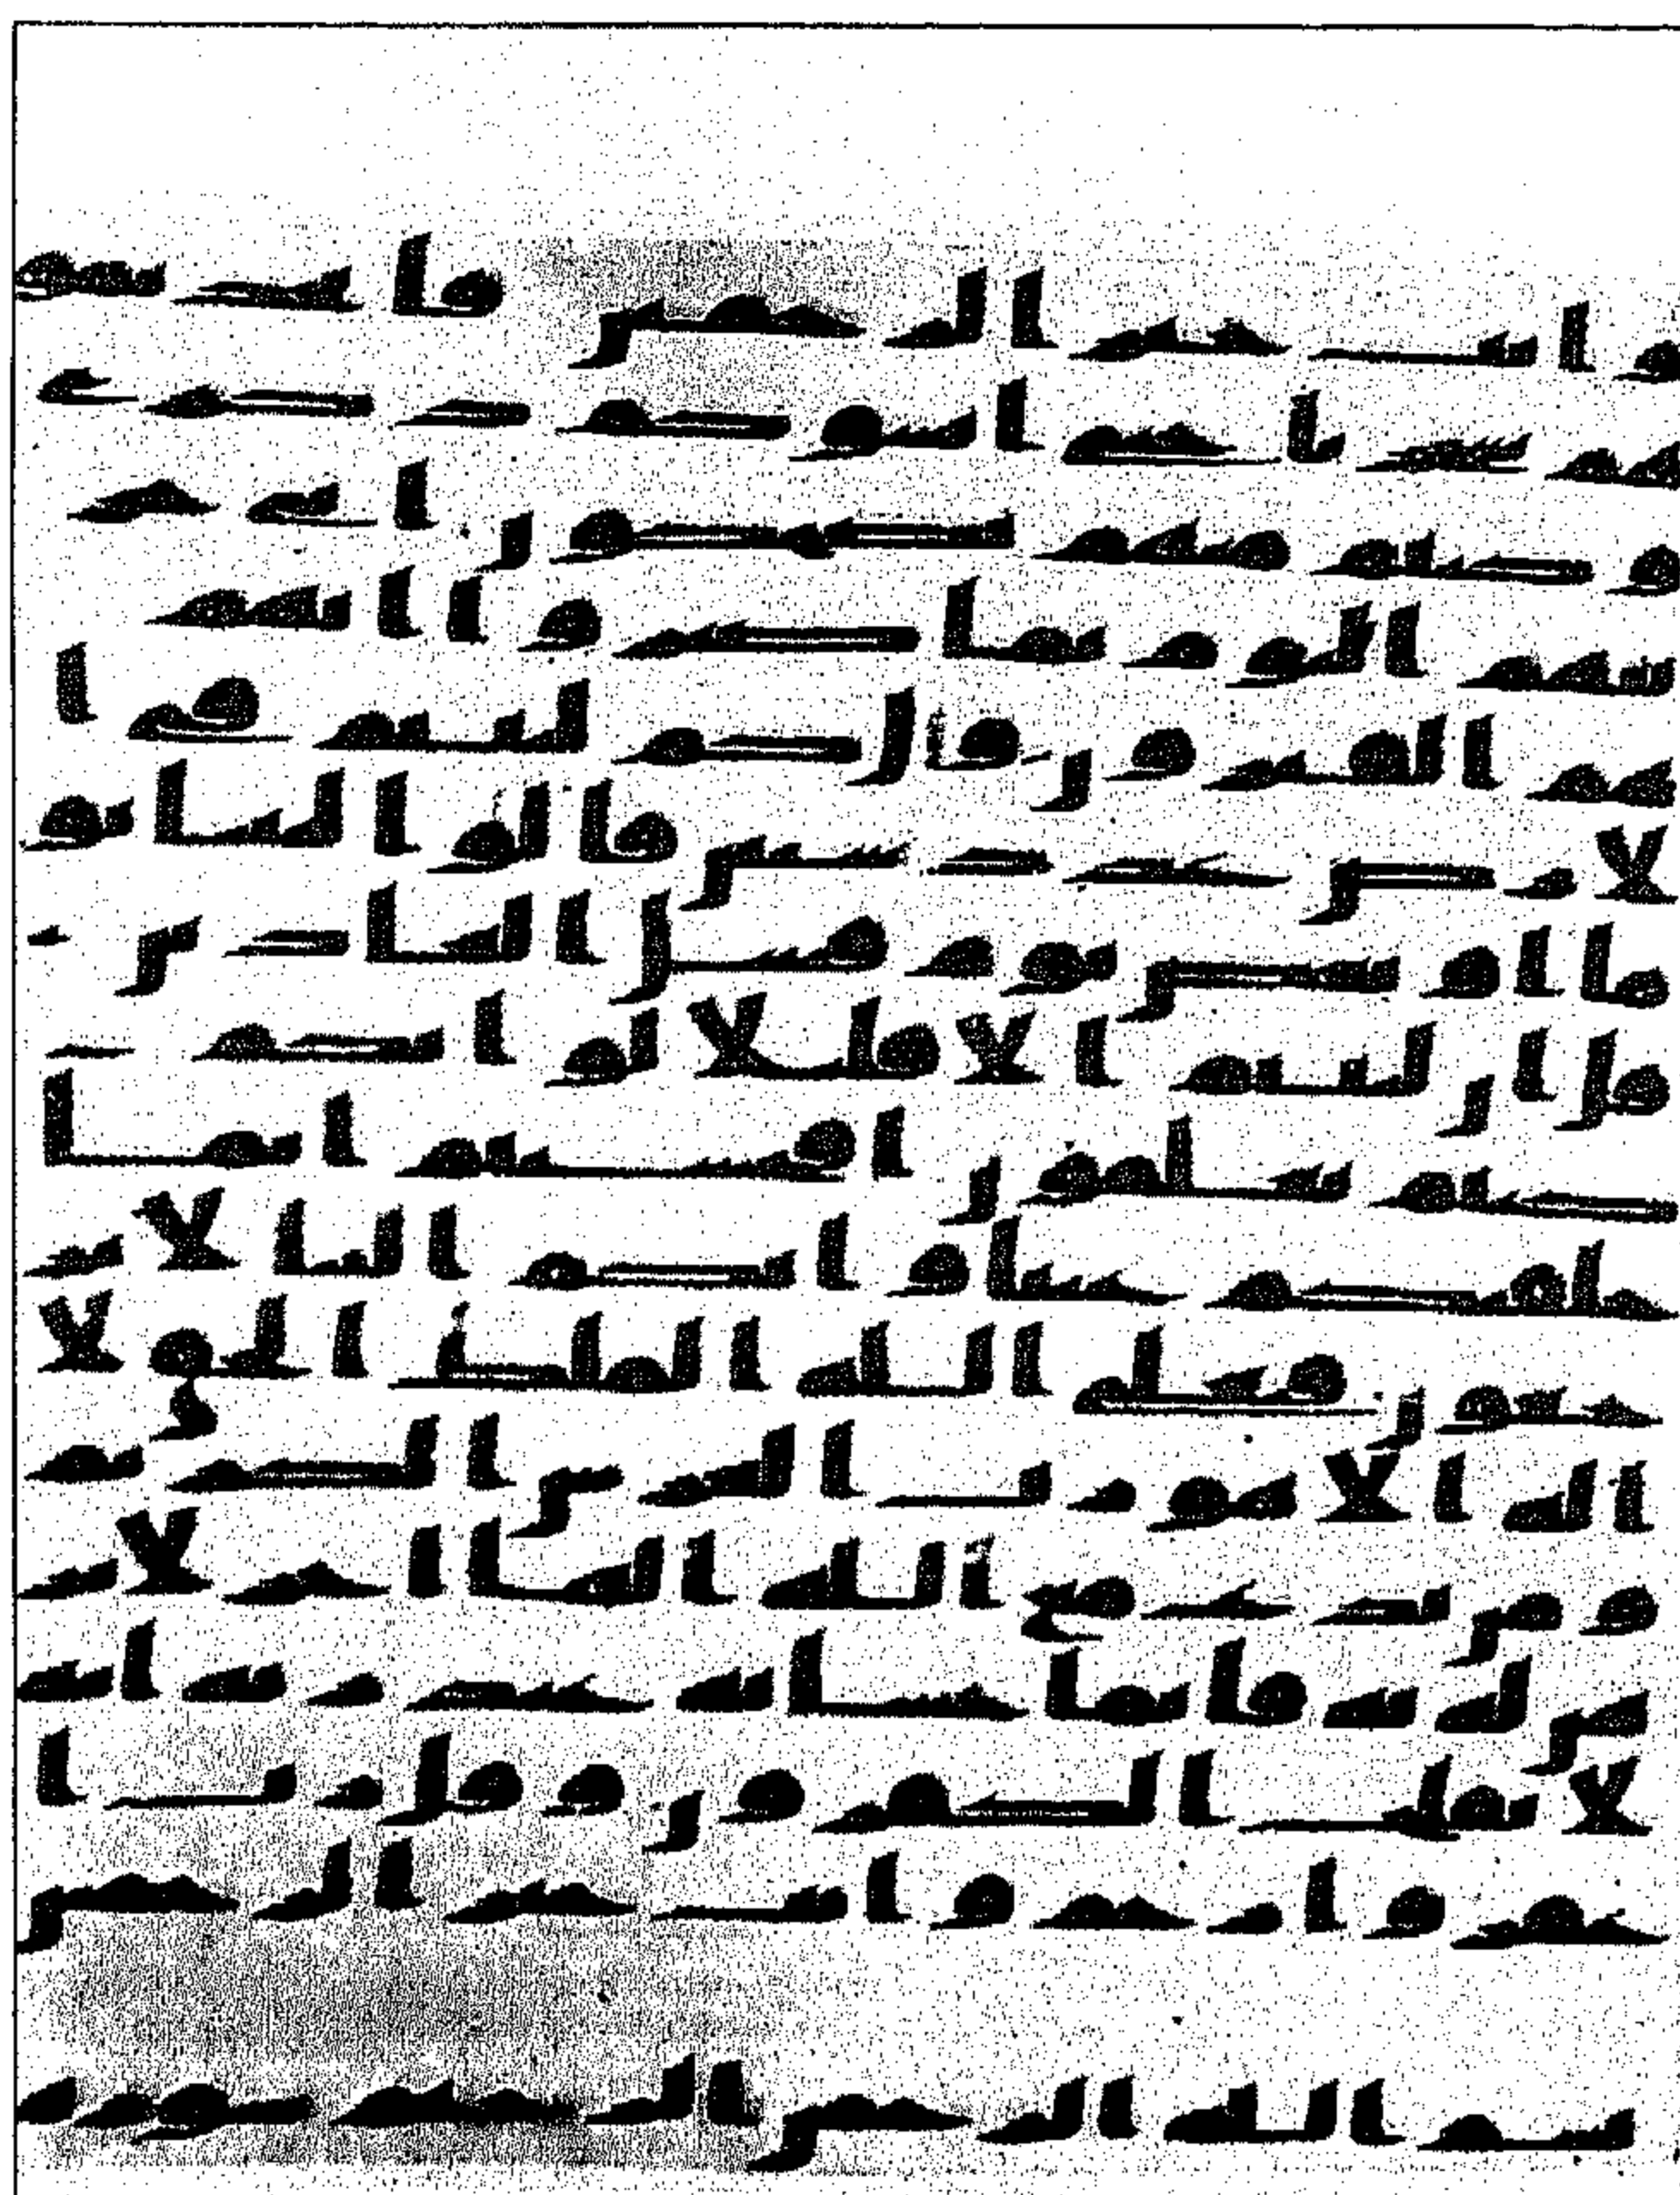 و انت خير الرحمين فاتخذتمو
هم سخريا حتى انسوكم ذكرى
و كنتم منهم تضحكون انى جز
يتهم اليوم بما صبروا انهم
هم الفائزون قال كم لبثتم فى ا
لارض عدد سنين قالوا لبثنا يو
ما او بعض يوم فسل العادين
قل ان لبثتم الا قليلا لو انكم
كنتم تعلمون افحسبتم انما
خلقنكم عبثا و انكم الينا لا تر
جعون فتعلى الله الملك الحق لا
اله الا هو رب العرش الكريم
و من يدع مع الله الها اخر لا بر
هن له به فانما حسابه عند ربه انه
لا يفلح الكفرون و قل رب ا
غفر و ارحم و انت خير الرحمين
بسم الله الرحمن الرحيم سورة